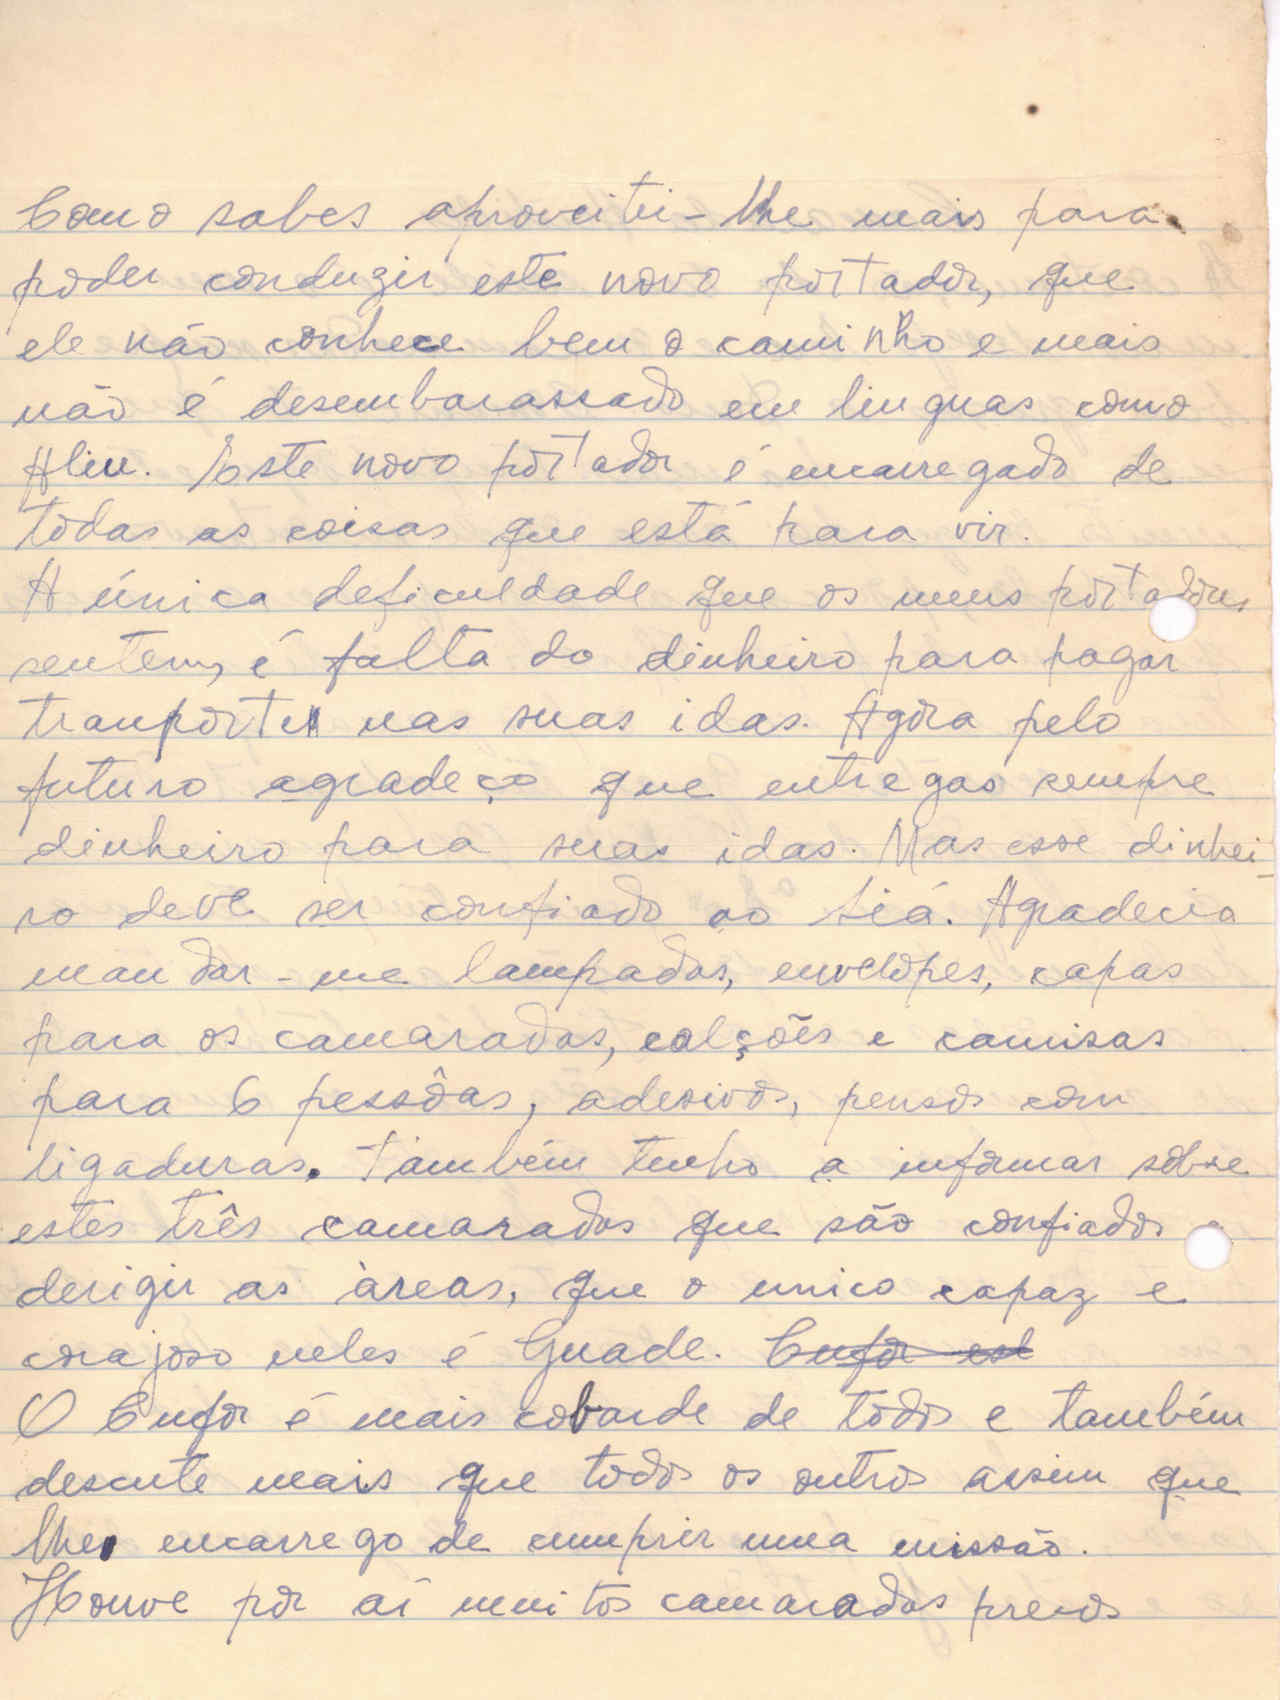 Como sabes aproveitei-lhe mais para
poder conduzir este novo portador, que
ele não conhece bem o caminho e mais
não é desembarassado em linguas como
Aliu. Este novo portador é encarregado de
todas as coisas que está para vir.
A única deficuldade que os meus portadores
sentem, é falta do dinheiro para pagar
tranportes nas suas idas. Agora pelo
futuro agradeço que entregas sempre
dinheiro para suas idas. Mas esse dinhei-
ro deve ser confiado ao Siá. Agradecia
mandar-me lampadas, envelopes, capas
para os camaradas, calções e camisas
para 6 pessôas, adesivos, pensos com
ligaduras. Também tenho a informar sôbre
estes três camaradas que são confiados
derigir as àreas, que o unico capaz e
corajoso neles é Guade. Cufor est
O Cufor é mais cobarde de todos e também
descute mais que todos os outros assim que
lhe encarrego de cumprir uma missão.
Houve por aí muitos camaradas presos